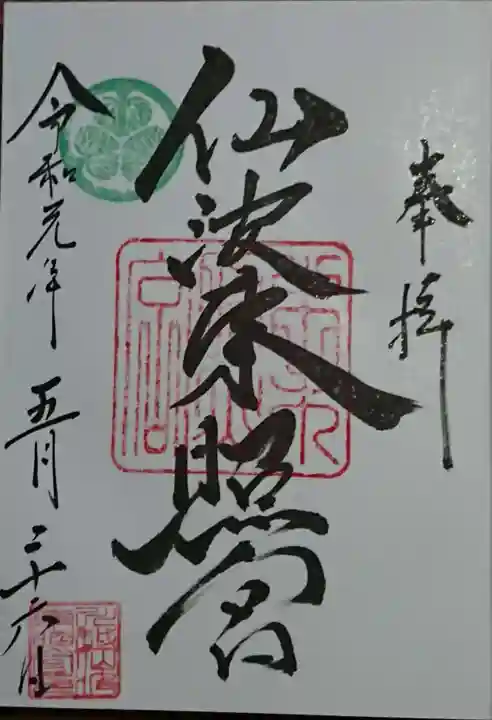 奉拝
仙波東照宮
令和元年五月二十六日